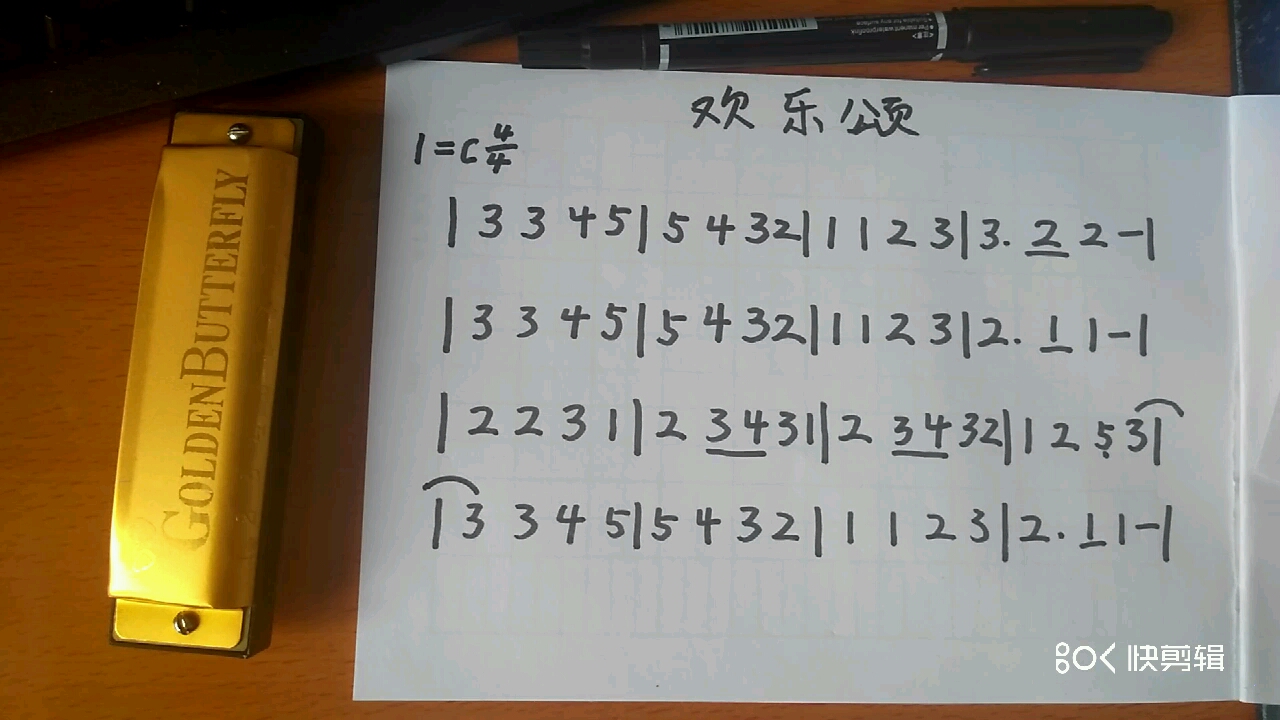 欢乐颂
1=C 4/4
| 3 3 4 5 | 5 4 3 2 | 1 1 2 3 | 3. 2 2 - |
| 3 3 4 5 | 5 4 3 2 | 1 1 2 3 | 2. 1 1 - |
| 2 2 3 1 | 2 3 4 3 1 | 2 3 4 3 2 | 1 2 5 3 |
| 3 3 4 5 | 5 4 3 2 | 1 1 2 3 | 2. 1 1 - |
GOLDENBUTTERFLY
快剪辑